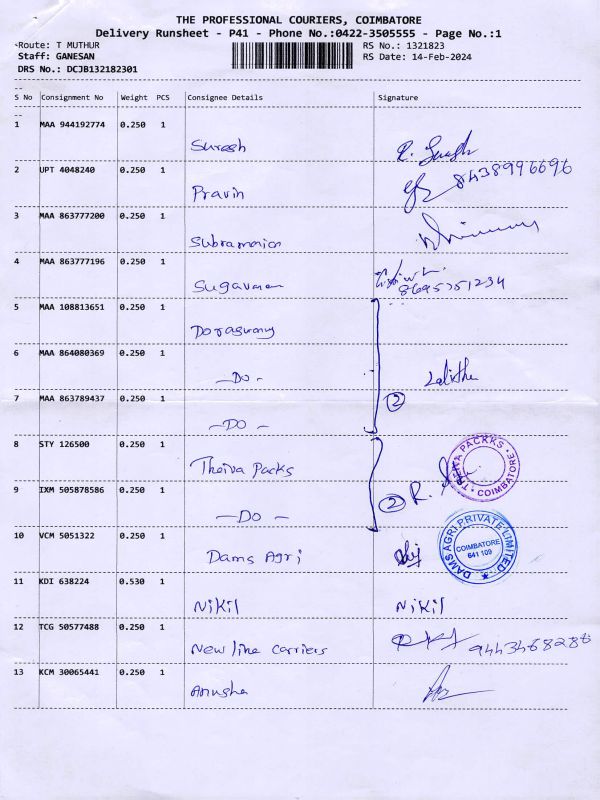 THE PROFESSIONAL COURIERS, COIMBATORE
Delivery Runsheet - P41 - Phone No.:0422-3505555 - Page No.:1
Route: T MUTHUR
RS No.: 1321823
Staff: GANESAN
RS Date: 14-Feb-2024
DRS No.: DCJB132182301
S No Consignment No Weight PCS Consignee Details Signature
1 MAA 944192774 0.250 1
Suresh
2 UPT 4048240 0.250 1 8438996696
Pravin
3 MAA 863777200 0.250 1
Subramanian
4 MAA 863777196 0.250 1
Sugavanan
5 MAA 108813651 0.250 1
Doraswamy
6 MAA 864080369 0.250 1
-DO- Lalitha
7 MAA 863789437 0.250 1 2
-DO-
8 STY 126500 0.250 1
Theiva Packs THEIVA PACKKS COIMBATORE
9 IXM 505878586 0.250 1 2 R.
-DO-
10 VCM 5051322 0.250 1
Dams Agri DAMS AGRI PRIVATE LIMITED COIMBATORE 641 109
11 KDI 638224 0.530 1
Nikil Nikil
12 TCG 50577488 0.250 1
New line carriers 9443468286
13 KCM 30065441 0.250 1
Anusha